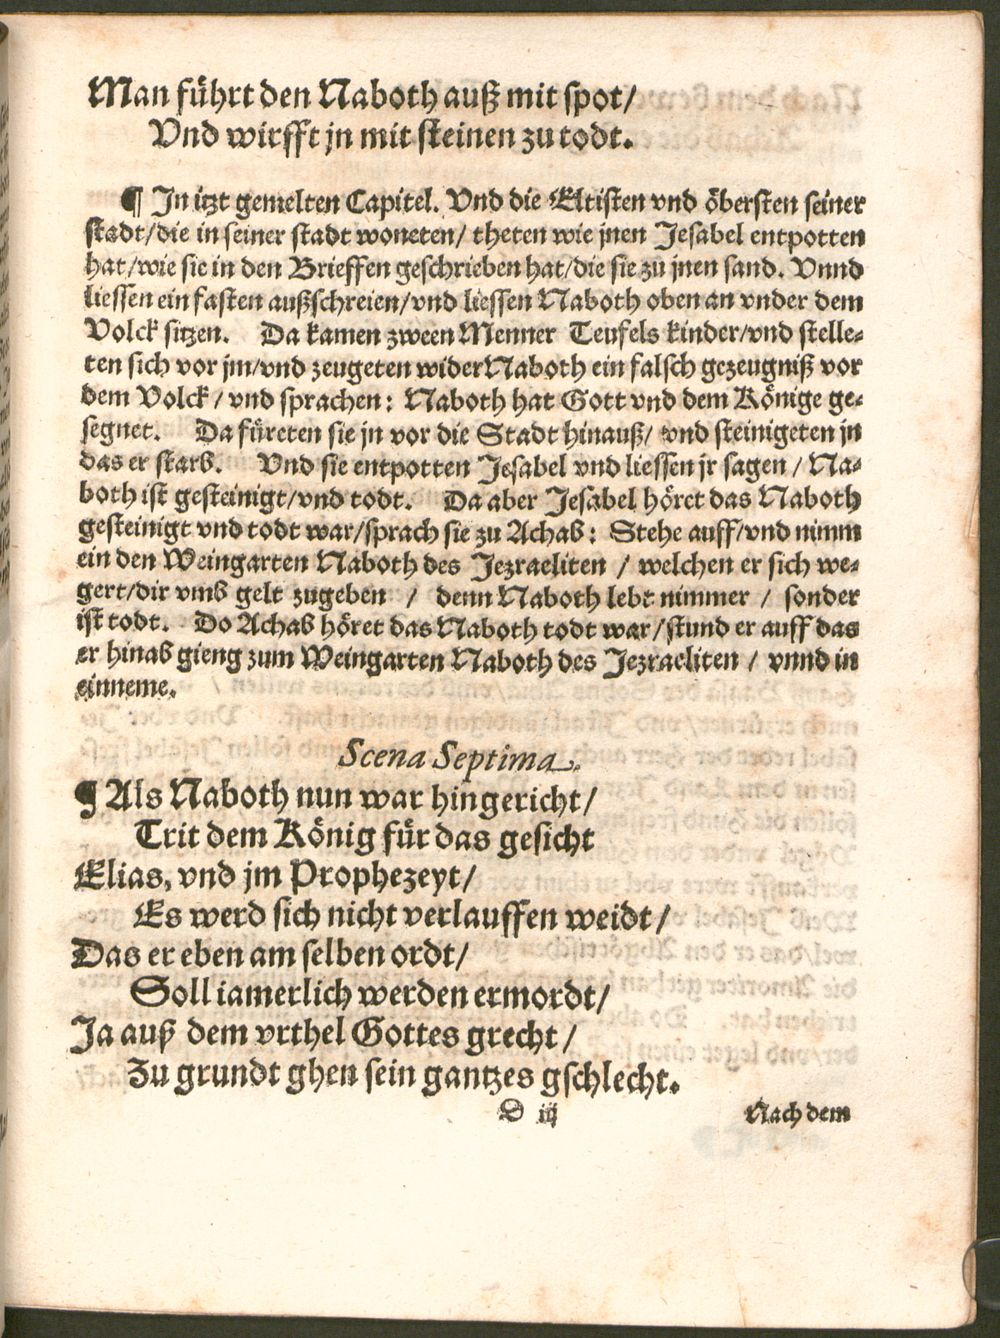 Man führt den Naboth auß mit spot/
Vnd wirfft jn mit steinen zu todt.
¶ In itzt gemelten Capitel. Vnd die Eltisten vnd öbersten seiner
stadt/die in seiner stadt woneten/ theten wie jnen Jesabel entpotten
hat/wie sie in den Brieffen geschrieben hat/die sie zu jnen sand. Vnnd
liessen ein fasten außschreien/vnd liessen Naboth oben an vnder dem
Volck sitzen. Da kamen zween Menner Teufels kinder/vnd stelle-
ten sich vor jm/vnd zeugeten wider Naboth ein falsch gezeugniß vor
dem Volck/ vnd sprachen: Naboth hat Gott vnd dem Könige ge-
segnet. Da füreten sie jn vor die Stadt hinauß/ vnd steinigeten jn
das er starb. Vnd sie entpotten Jesabel vnd liessen jr sagen/ Na-
both ist gesteinigt/vnd todt. Da aber Jesabel höret das Naboth
gesteinigt vnd todt war/sprach sie zu Achab: Stehe auff/vnd nimm
ein den Weingarten Naboth des Jezraeliten / welchen er sich we-
gert/dir vmb gelt zugeben / denn Naboth lebt nimmer / sonder
ist todt. Do Achab höret das Naboth todt war/stund er auff das
er hinab gieng zum Weingarten Naboth des Jezraeliten / vnnd in
einneme.
Scena Septima.
¶ Als Naboth nun war hingericht/
Trit dem König für das gesicht
Elias, vnd jm Prophezeyt/
Es werd sich nicht verlauffen weidt/
Das er eben am selben ordt/
Soll iamerlich werden ermordt/
Ja auß dem vrthel Gottes grecht/
Zu grundt ghen sein gantzes gschlecht.
D iij Nach dem